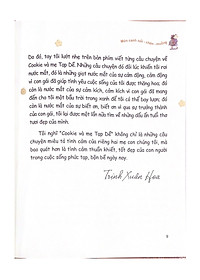 Do đó, tay tôi lướt nhẹ trên bàn phím viết từng câu chuyện về
Cookie và mẹ Tạp Dề. Những câu chuyện đó đôi lúc khiến tôi rơi
nước mắt, đó là những giọt nước mắt của sự cảm động, cảm động
vì con gái đã giúp tôi hiểu được thế nào là tình yêu đích thực; đó là
nước mắt của sự cảm kích, cảm kích vì con gái đã mang
đến cho tôi một bầu trời trong xanh để tôi có thể bay lượn; đó
còn là nước mắt của sự biết ơn, biết ơn vì sự trưởng thành
của con gái, tôi lại được một lần nữa tìm về những dấu ấn tuổi thơ
tươi đẹp của mình.
Tôi nghĩ "Cookie và mẹ Tạp Dề" không chỉ là những câu
chuyện miêu tả tình cảm của riêng hai mẹ con chúng tôi, mà
bao quát hơn là tình cảm thuần khiết, tốt đẹp của con người
trong cuộc sống phức tạp, bộn bề ngày nay.
Trịnh Xuân Hoa